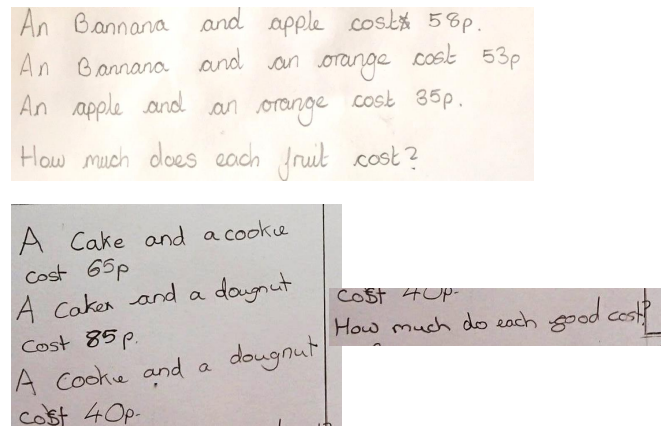 An Bannana and apple cost 58p.
An Bannana and an orange cost 53p
An apple and an orange cost 35p.
How much does each fruit cost?
A Cake and a cookie
cost 65p
A Cake and a dougnut
cost 85p.
A Cookie and a dougnut
cost 40p-
cost 40p-
How much do each good cost?